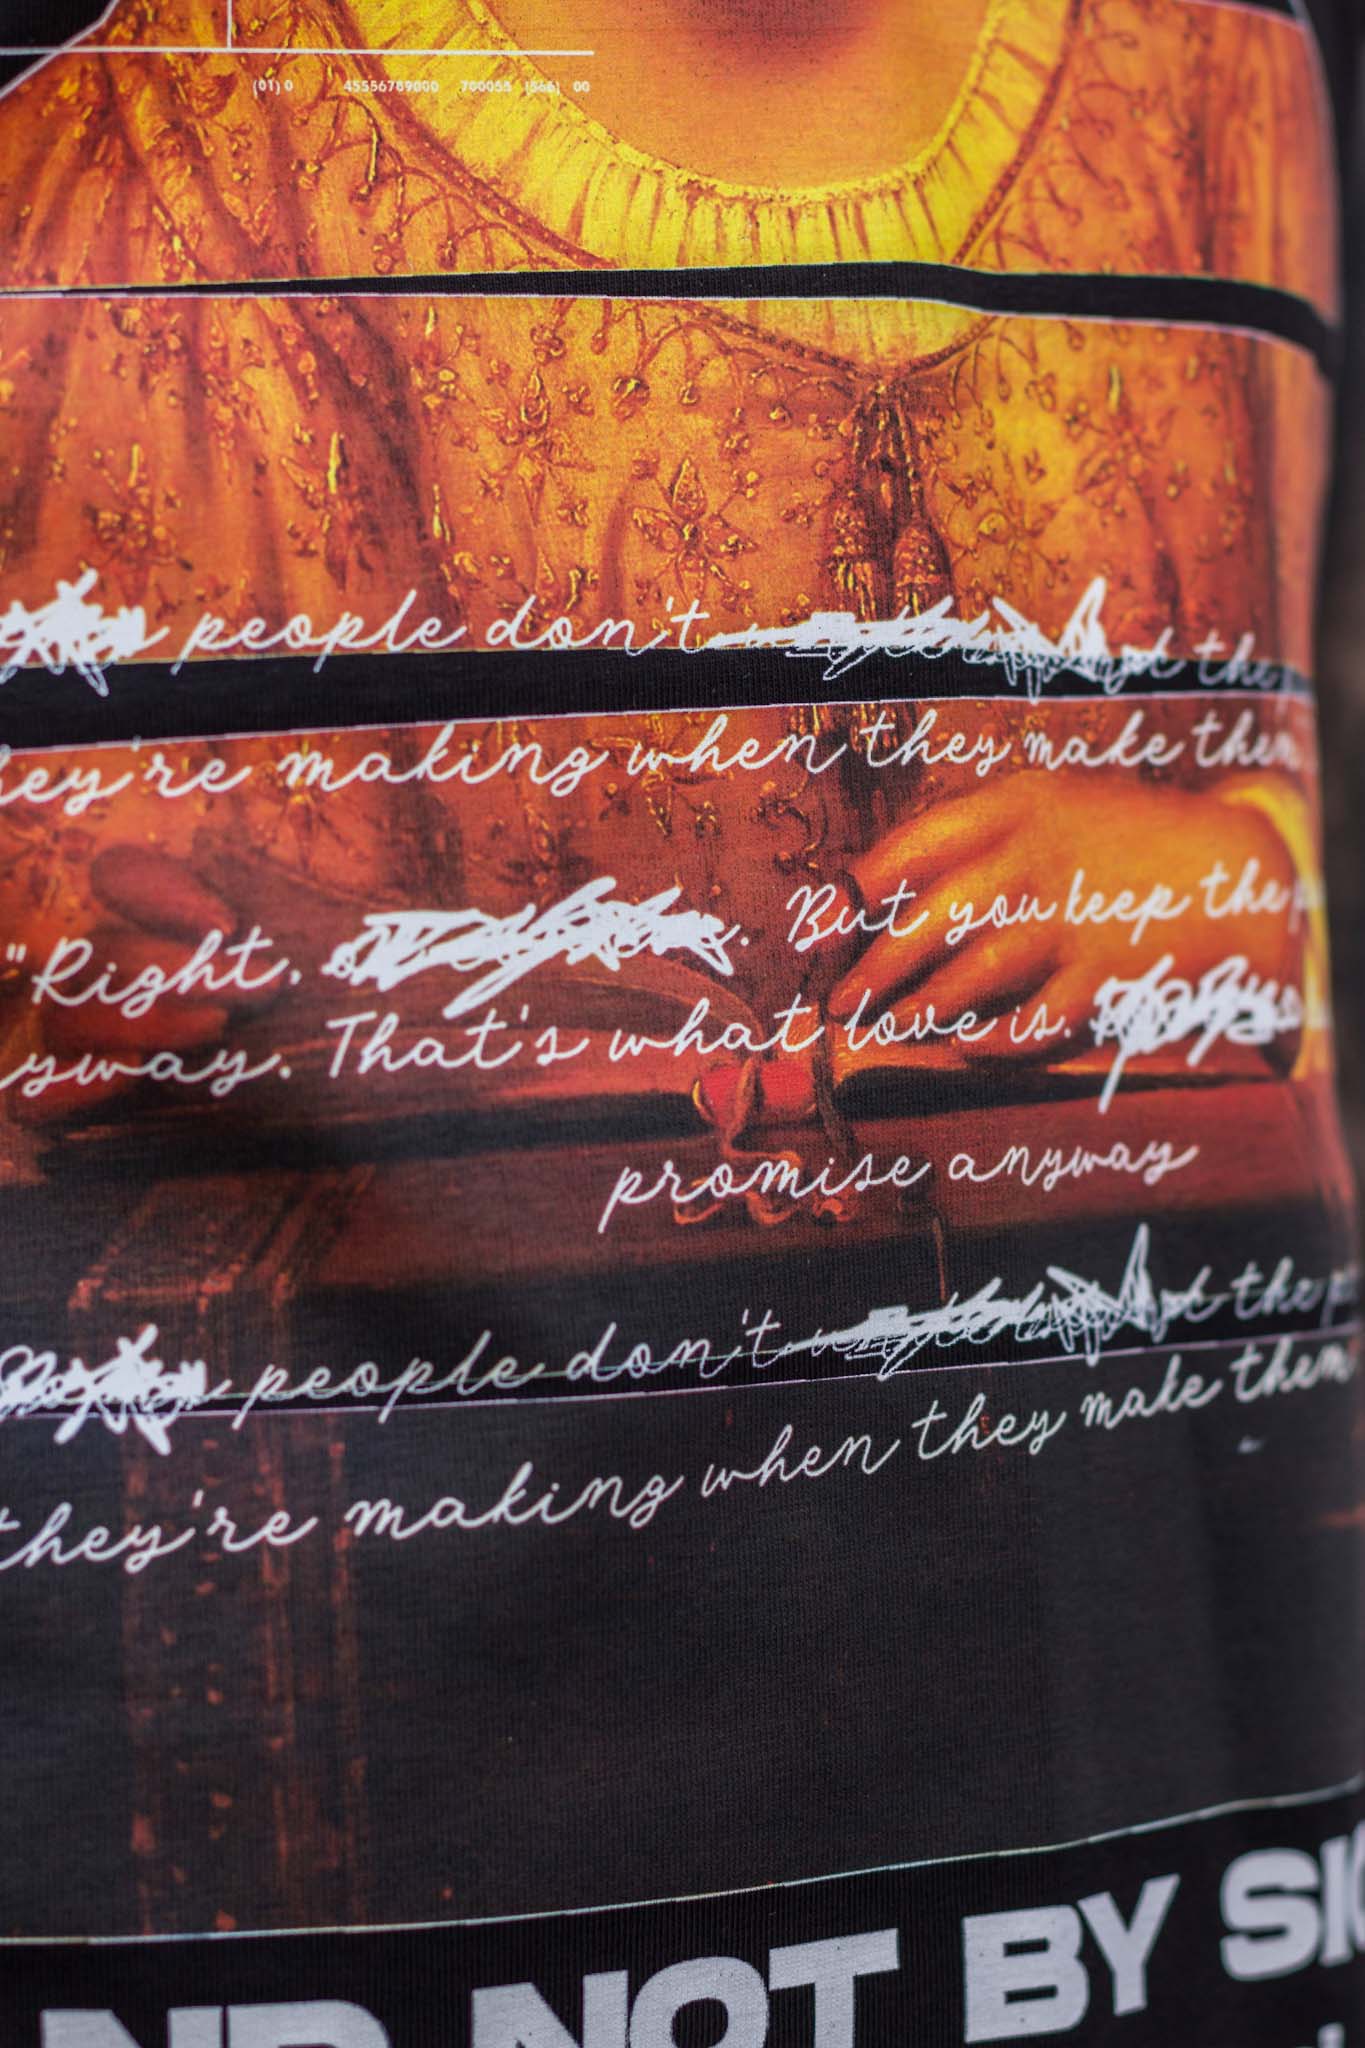 (01) 0 45556789000 700055 (566) 00
people don't the
hey're making when they make them
"Right. But you keep the
yway. That's what love is.
promise anyway
people don't the
they're making when they make them
NOT BY